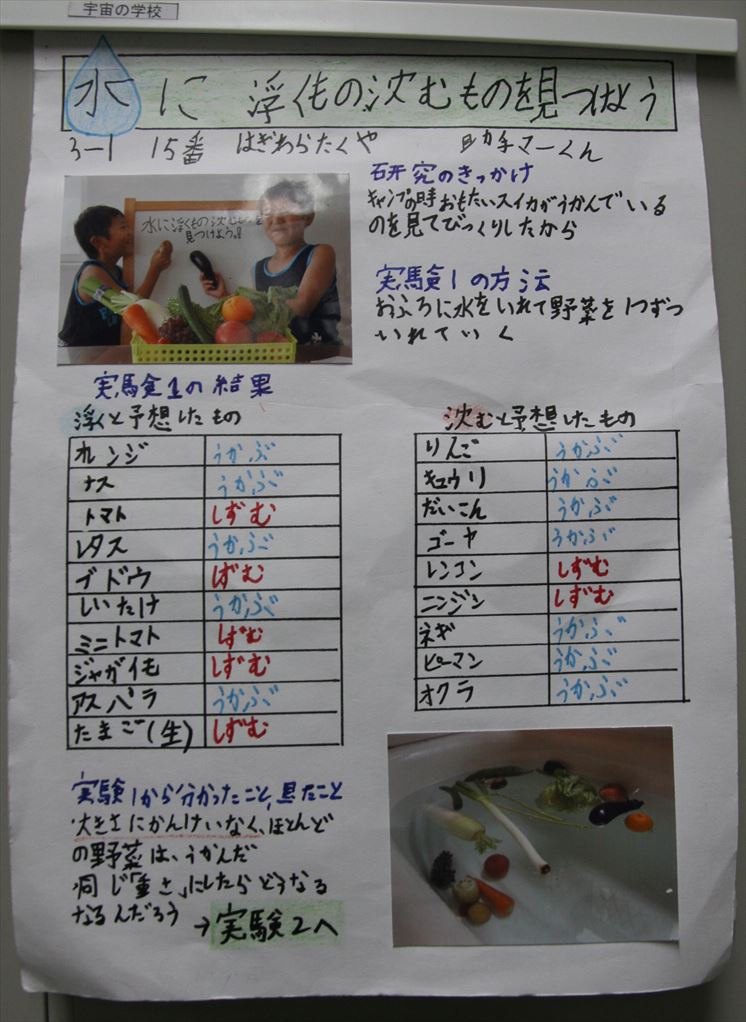 宇宙の学校
水に 浮くもの沈むものを見つけよう
3-1 15番 はぎわらたくや 助手マーくん
研究のきっかけ
キャンプの時おもたいスイカがうかんでいる
のを見てびっくりしたから
水に浮くもの沈むものを
見つけよう。
実験1の方法
おふろに水をいれて野菜を1つずつ
いれていく
実験1の結果
浮くと予想したもの
オレンジ うかぶ
ナス うかぶ
トマト しずむ
レタス うかぶ
ブドウ しずむ
しいたけ うかぶ
ミニトマト しずむ
ジャガイモ しずむ
アスパラ うかぶ
たまご(生) しずむ
沈むと予想したもの
りんご うかぶ
キュウリ うかぶ
だいこん うかぶ
ゴーヤ うかぶ
レンコン しずむ
ニンジン しずむ
ネギ うかぶ
ピーマン うかぶ
オクラ うかぶ
実験1から分かったこと,見たこと
大きさにかんけいなく、ほとんど
の野菜は、うかんだ
同じ「重さ」にしたらどうなる
なるんだろう →実験2へ